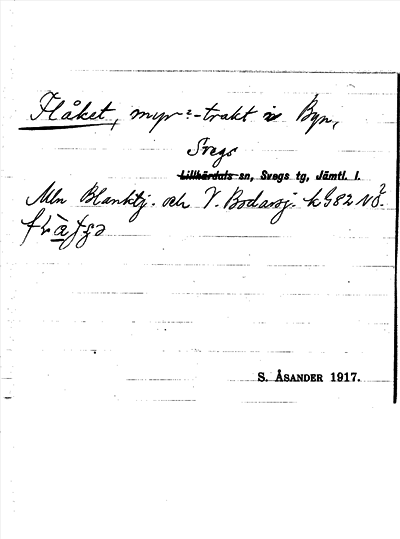 Flåket, myr-trakt i Byn,
Svegs
Lillhärdals sn, Svegs tg, Jämtl. l.
Mln Blanktj. och V. Bodarsj. k G82 NÖ.
S. ÅSANDER 1917.